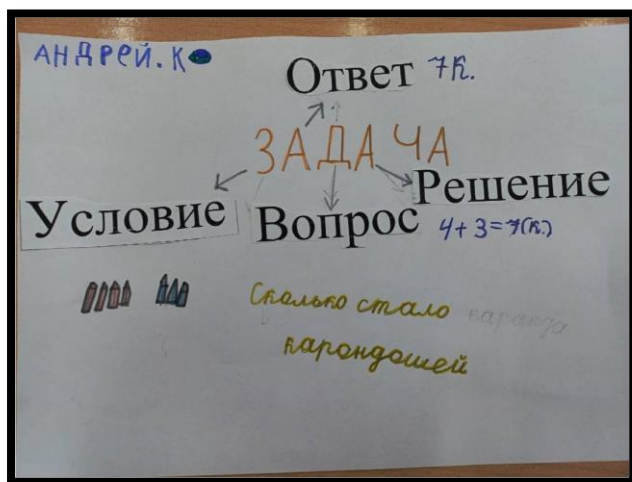 АНДРЕЙ. К
Ответ 7к.
ЗАДАЧА
Условие Вопрос Решение
4+3=7(к.)
Сколько стало каранда
карондошей